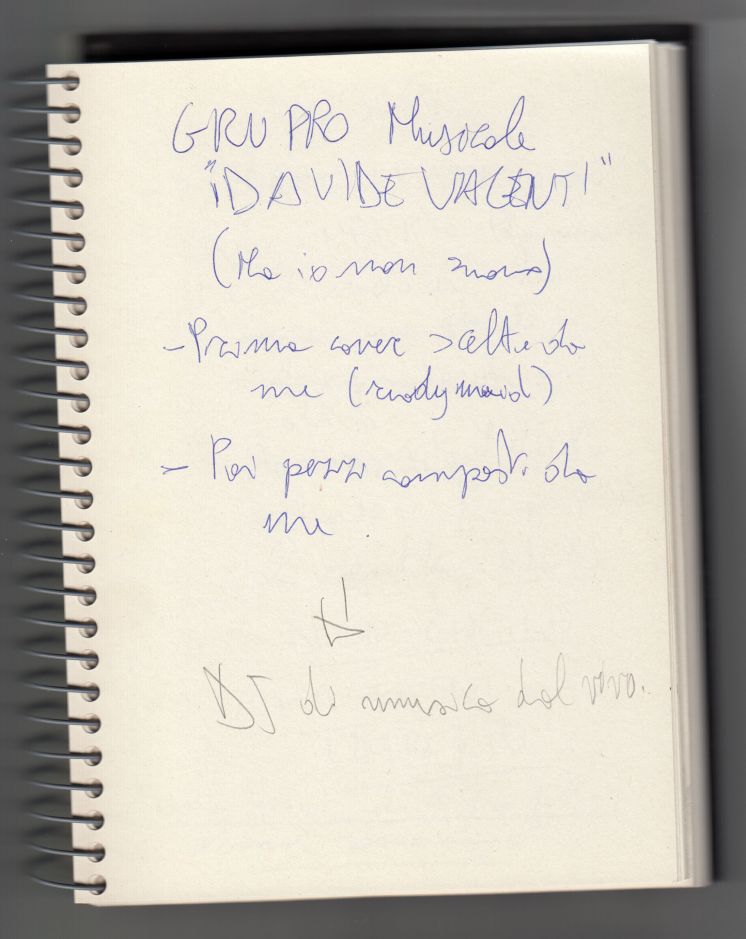 GRUPPO Musicale
"i DAVIDE VALENTI"
(Ma io non suono)
- Prima cover scelte da
me (readymaid)
- Poi pezzi composti da
me.
DJ di musica dal vivo.